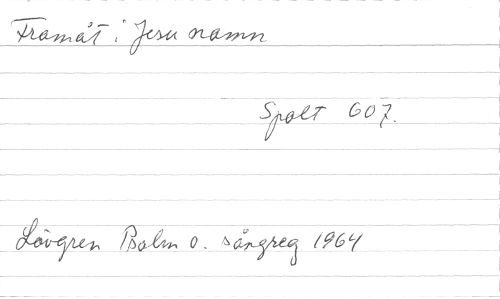 Framåt i Jesu namn
Spalt 607.
Lövgren Psalm o. sångreg 1964